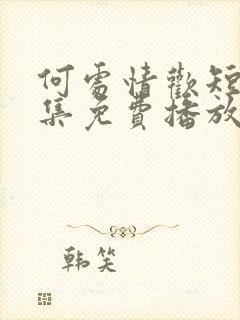 何處情歡短
集免費播放
韩笑